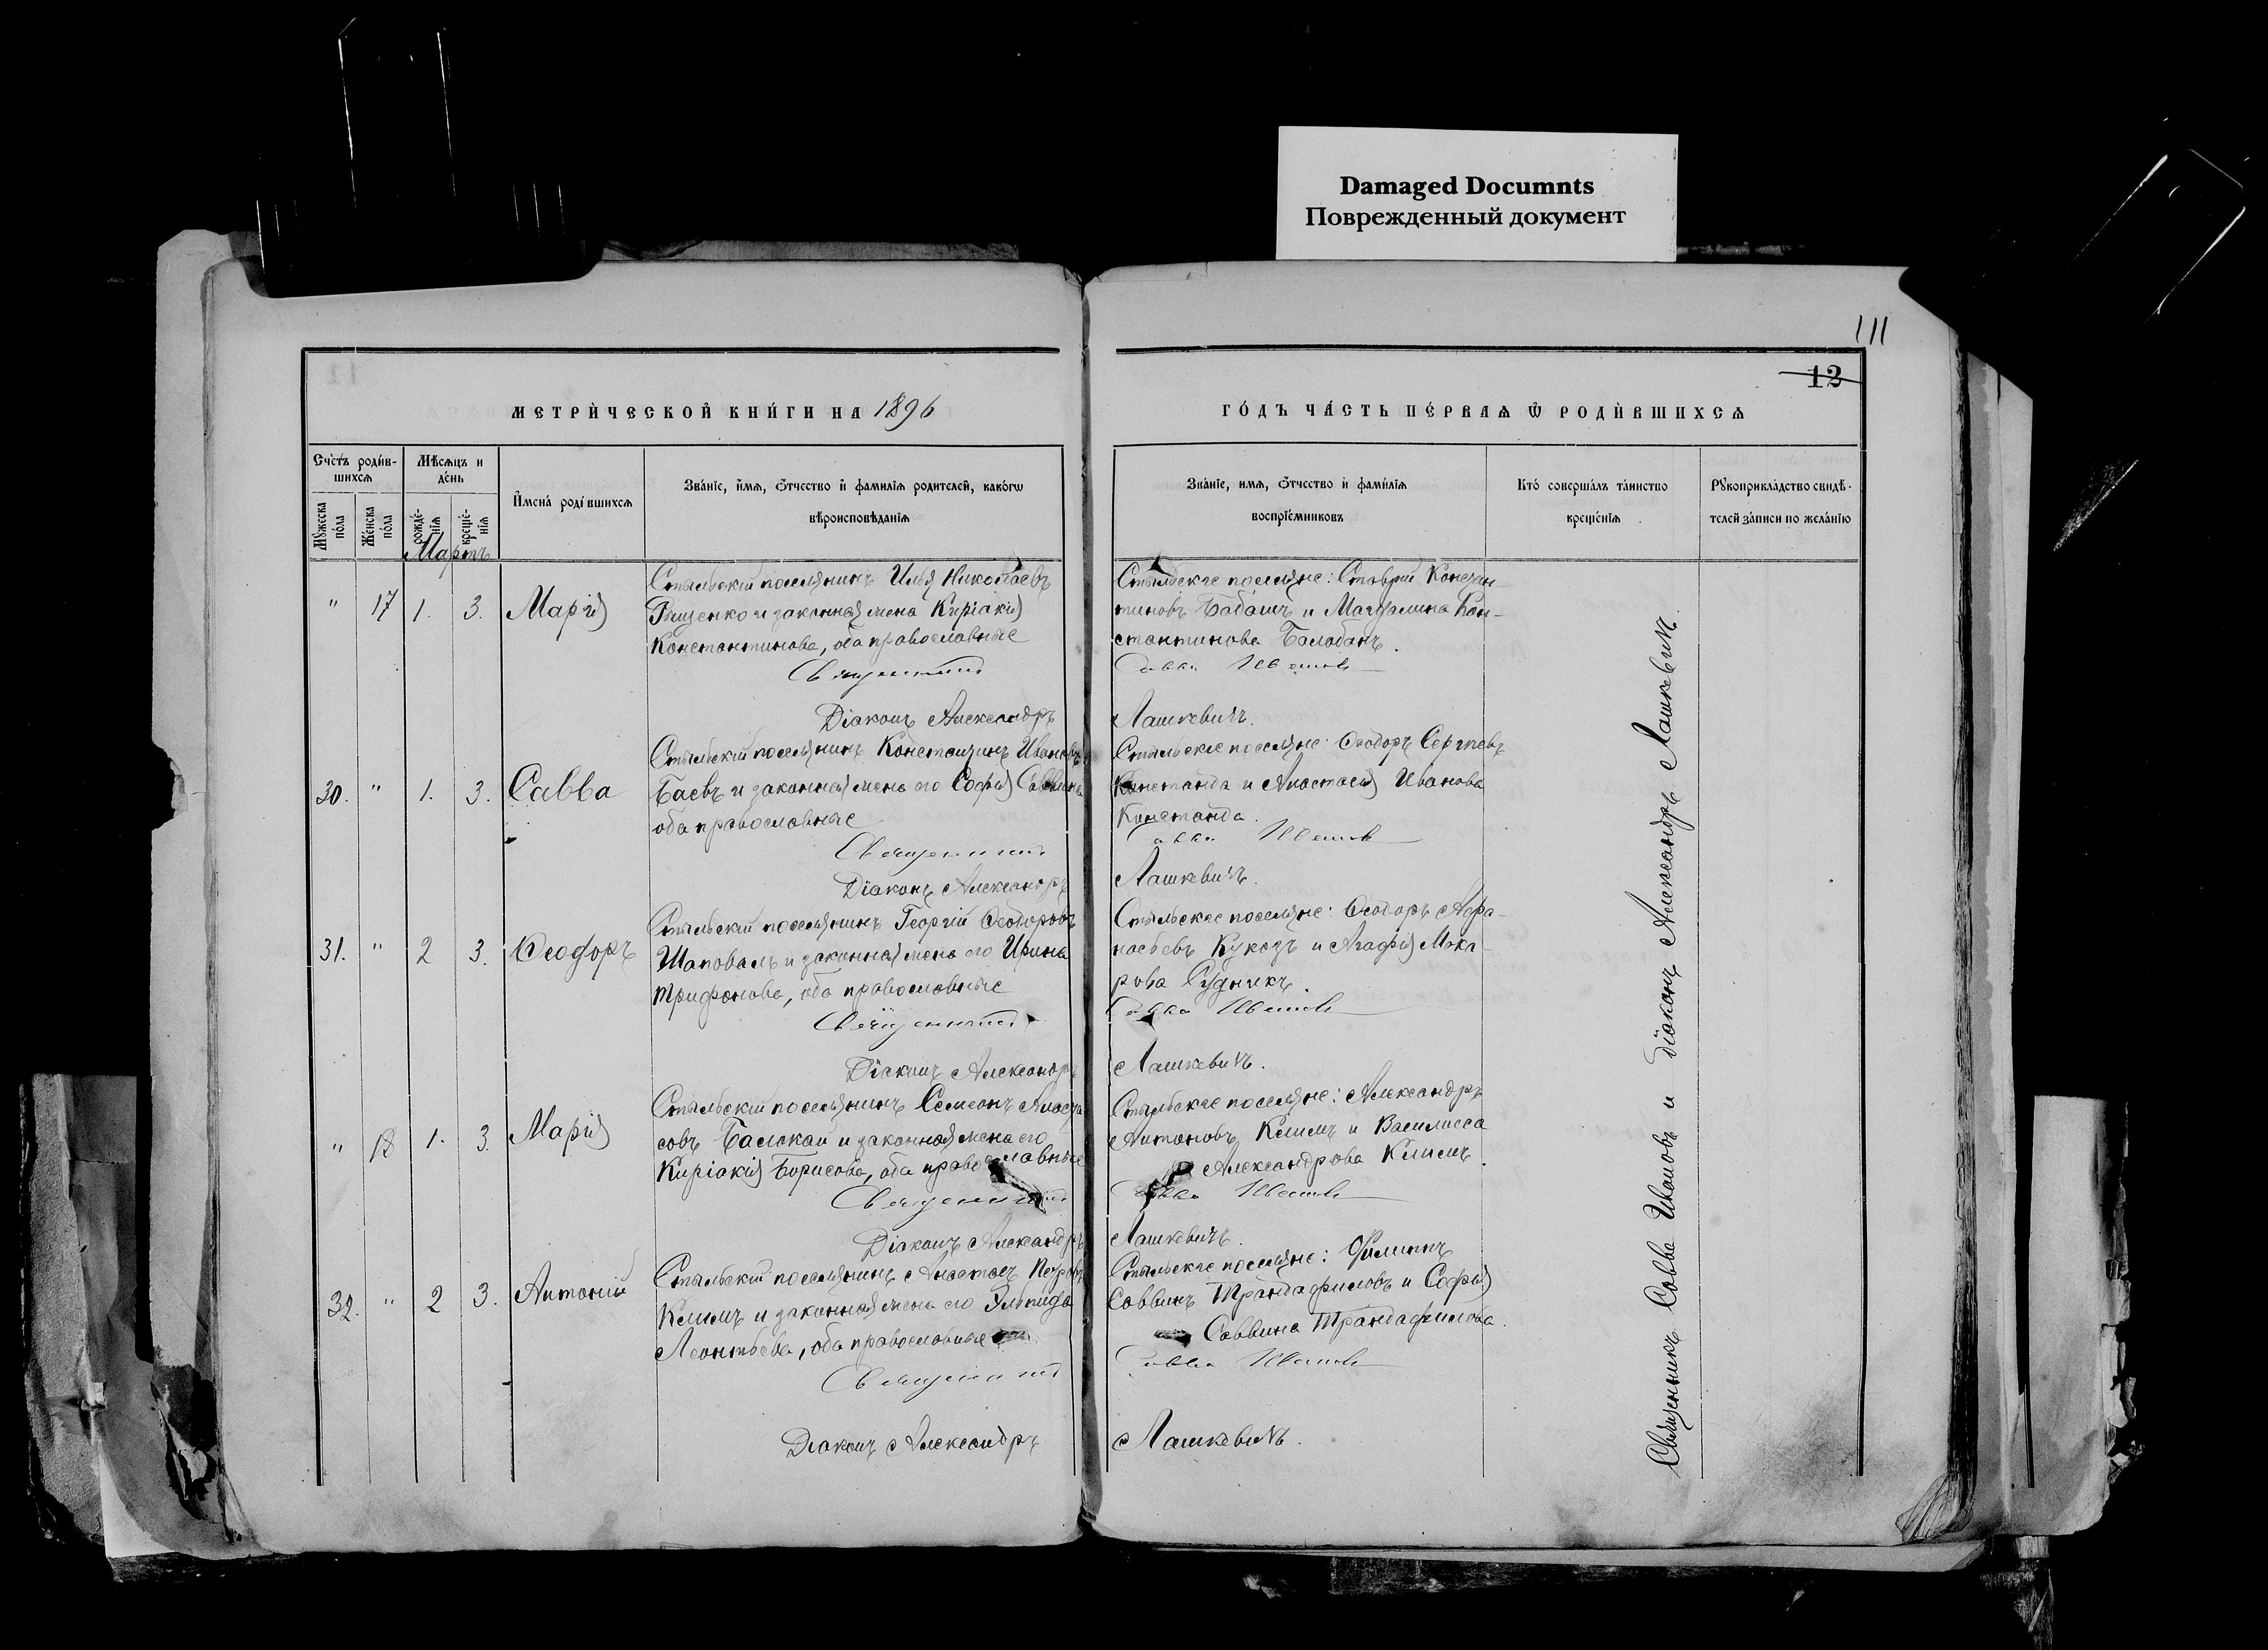 Damaged Documnts
Поврежденный документ
111
12
МЕТРИ́ЧЕСКОЙ КНИ́ГИ НА 1896
ГО́ДЪ ЧА́СТЬ ПЕ́РВАѦ Ѡ҆ РОДИ́ВШИХСѦ
Сче́тъ роди́в-
шихсѧ
Мѣ́сѧцъ и
де́нь
Мꙋ́жеска
по́ла
Же́нска
по́ла
рожде́-
нїѧ
креще́-
нїѧ
И҆мена́ роди́вшихсѧ
Зва́нїе, и҆́мѧ, ѻ҆́тчество и҆ фами́лїѧ родителей, како́гѡ
вѣроисповѣ́данїѧ
Зва́нїе, имѧ, ѻ҆́тчество и҆ фами́лїѧ
воспрїе́мниковъ
Кто́ соверша́лъ та́инство
креще́нїѧ
Рꙋкоприкла́дство свидѣ́-
телей за́писи по жела́нїю
Мартъ
" 17 1. 3. Марія
Стыльскій поселянинъ Илья Николаевъ
Гнщенко и законная жена Киріакія
Константинова, оба православные
Священникъ
Діаконъ Александръ
Стыльскіе поселяне: Ставрій Констан-
тиновъ Бабашъ и Магдалина Кон-
стантинова Балабанъ.
Савва Ивановъ
Лашкевичъ.
30. " 1. 3. Савва
Стыльскій поселянинъ Константинъ Ивановъ
Баевъ и законная жена его Софія Саввина
оба православные
Священникъ
Діаконъ Александръ
Стыльскіе поселяне: Ѳеодоръ Сергѣевъ
Констанда и Анастасія Иванова
Констанда.
Савва Ивановъ
Лашкевичъ.
31. " 2 3. Ѳеодоръ
Стыльскій поселянинъ Георгій Ѳеодоровъ
Шаповалъ и законная жена его Ирина
Трифонова, оба православные
Священникъ
Діаконъ Александръ
Стыльскіе поселяне: Ѳеодоръ Аѳа-
насьевъ Кукозъ и Агафія Мака-
рова Рудникъ.
Савва Ивановъ
Лашкевичъ.
" 18 1. 3. Марія
Стыльскій поселянинъ Семеонъ Анаста-
совъ Балжай и законная жена его
Киріакія Борисова, оба православные
Священникъ
Діаконъ Александръ
Стыльскіе поселяне: Александръ
Антоновъ Клишъ и Василисса
Александрова Клишъ.
Савва Ивановъ
Лашкевичъ.
32. " 2 3. Антоній
Стыльскій поселянинъ Анастасъ Петровъ
Клишъ и законная жена его Эльпида
Леонтьева, оба православные
Священникъ
Діаконъ Александръ
Стыльскіе поселяне: Филиппъ
Саввинъ Трандафиловъ и Софія
Саввина Трандафилова.
Савва Ивановъ
Лашкевичъ.
Священникъ Савва Ивановъ и діаконъ Александръ Лашкевичъ.